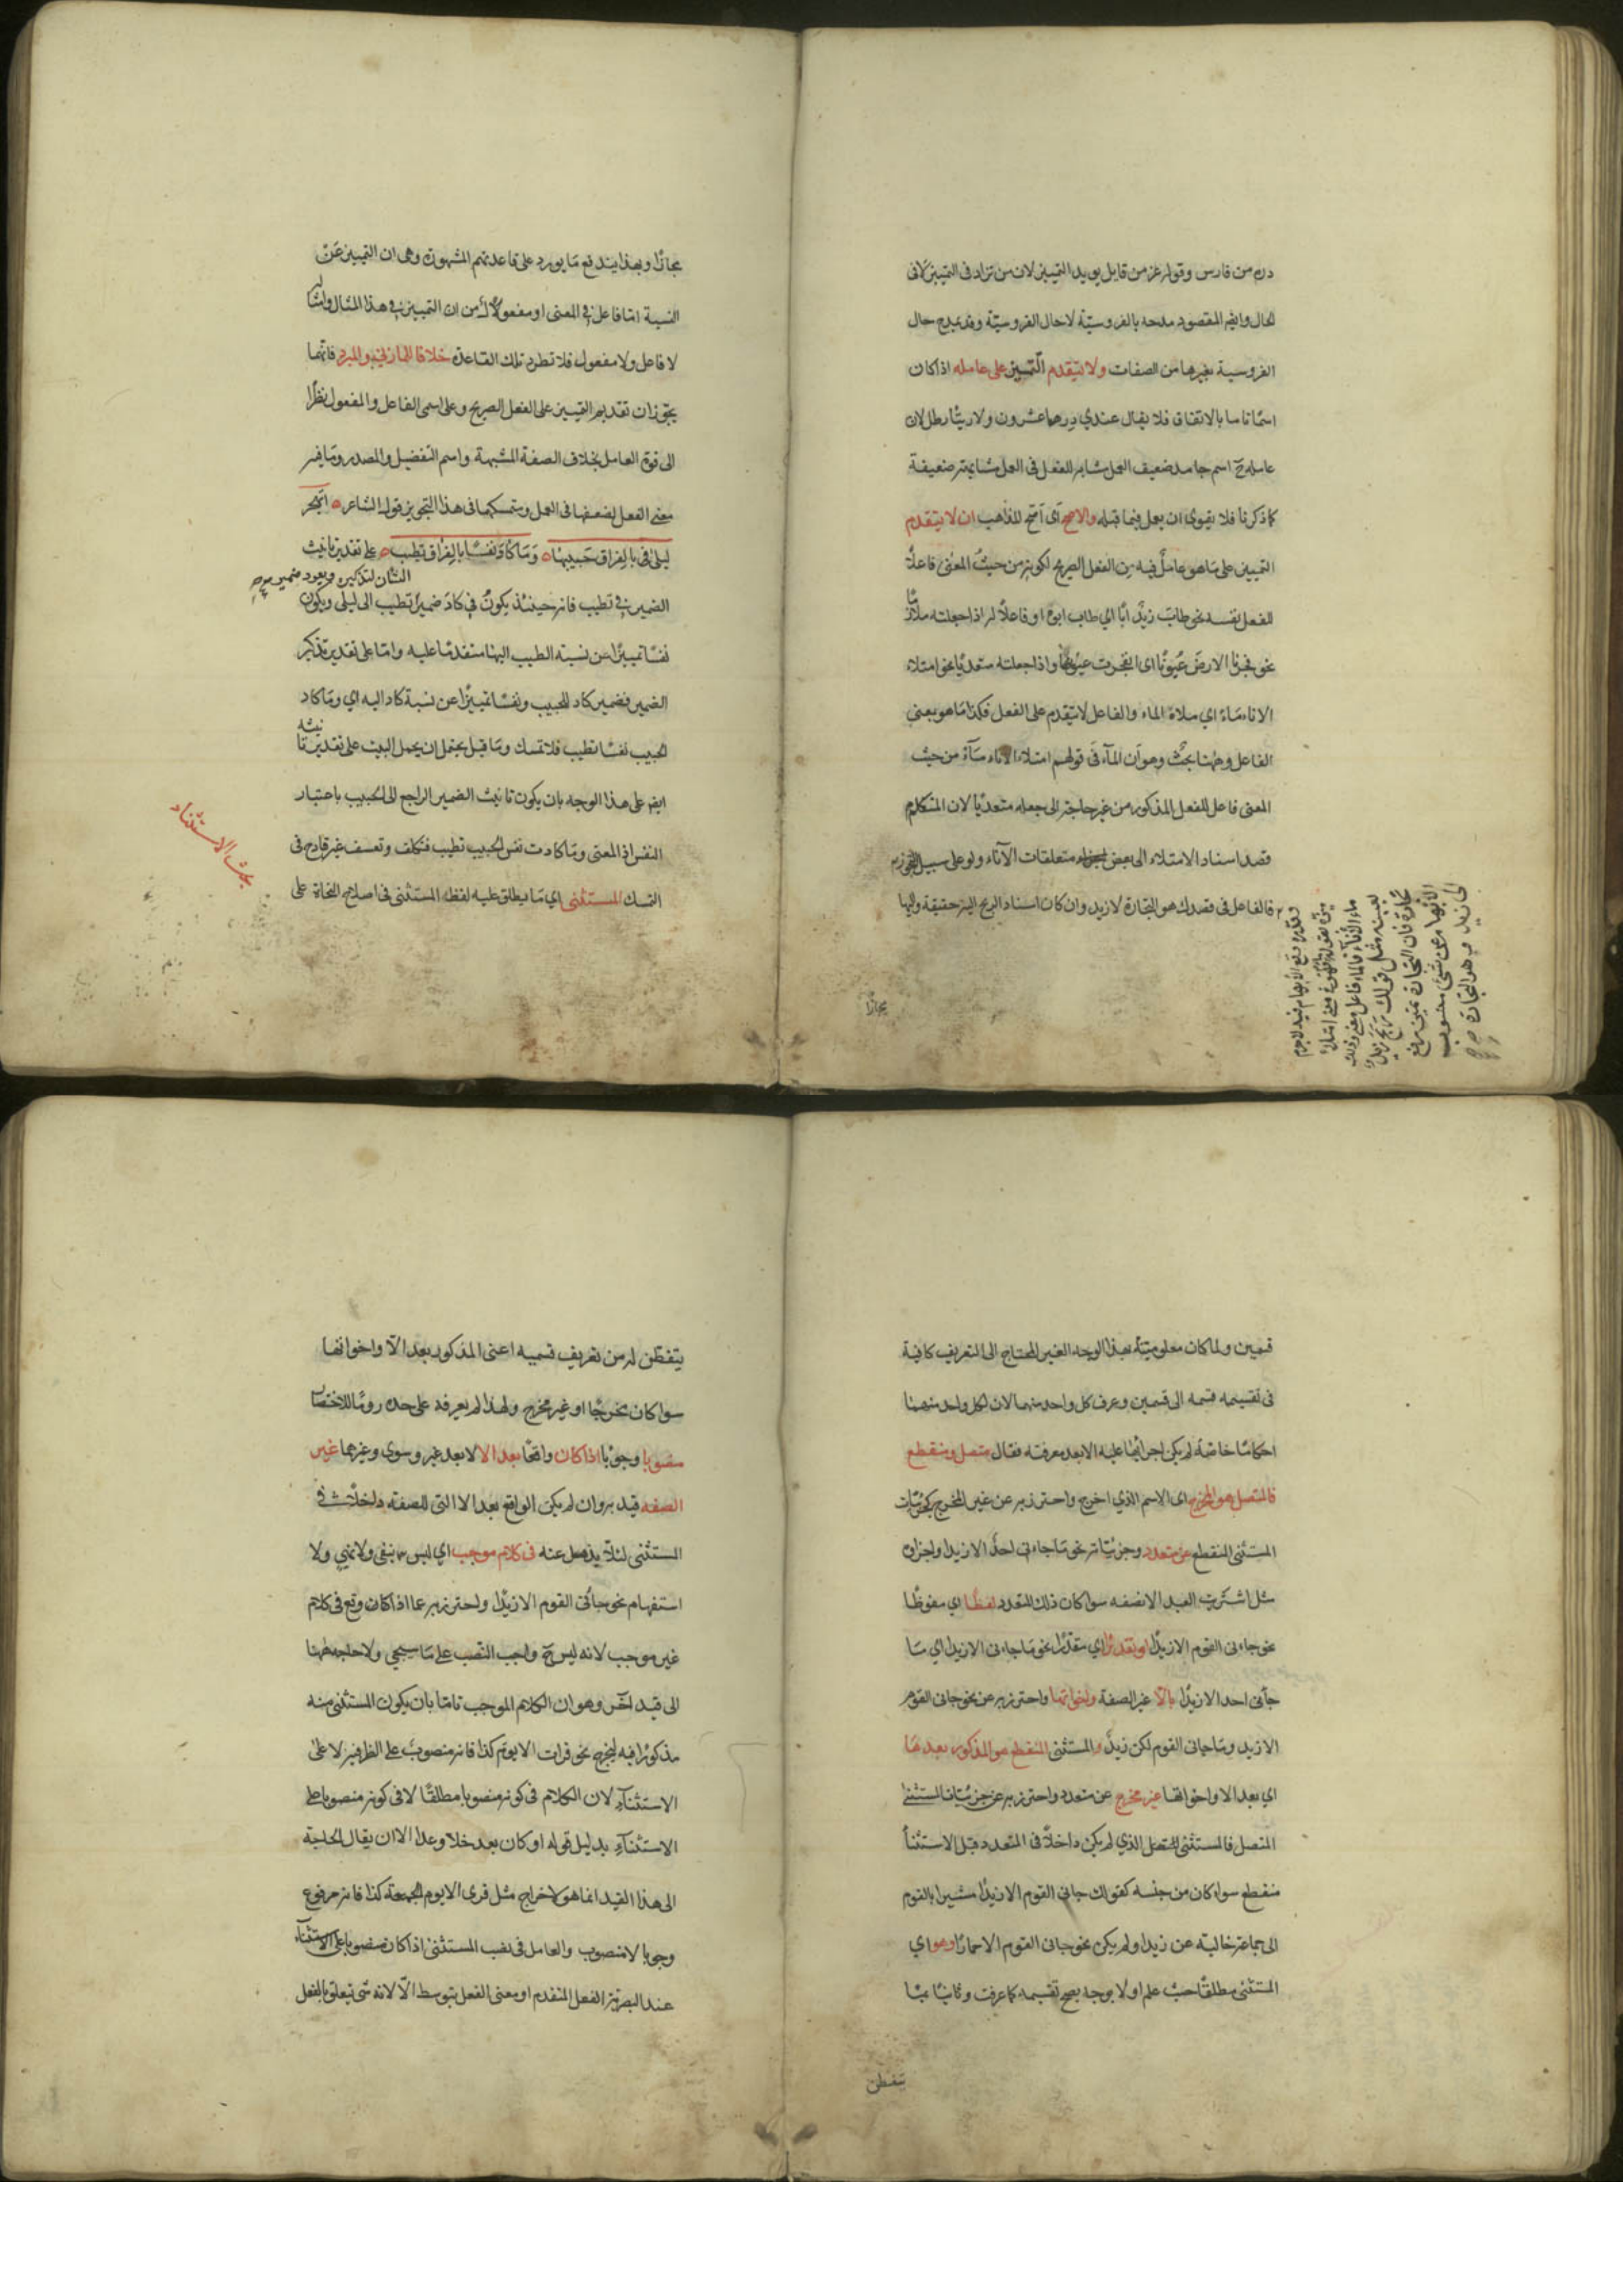 دره من فارس وقوله عز من قايل يويد التمييز لان من تزاد فى التمييز لا فى
الحال وايضا المقصود مدحه بالفروسيّة لا حال الفروسيّة وقد يمدح حال
الفروسية بغيرها من الصفات ولا يتقدم التّمييز على عامله اذا كان
اسمًا تاما بالاتفاق فلا يقال عندي درهما عشرون ولا زيتًا رطل لان
عامله ح اسم جامد ضعيف العمل مشابه للفعل فى العمل مشابهة ضعيفة
كما ذكرنا فلا يقوى ان يعمل فيما قبله والاصح اى اصح المذاهب ان لا يتقدم
التمييز على ما هو عامل فيه من الفعل الصريح لكونه من حيث المعنى فاعلًا
للفعل نفسه نحو طاب زيدٌ ابًا اي طاب ابوه او فاعلًا له اذا جعلته لازمًا
نحو فجرنا الارض عيونًا اى انفجرت عيونها واذا جعلته متعديًا نحو امتلاء
الاناء ماءً اي ملاءه الماء والفاعل لا يتقدم على الفعل فكذا ما هو بمعنى
الفاعل وههنا بحثٌ وهو ان المآء فى قولهم امتلاء الاناء مآءً من حيث
المعنى فاعل للفعل المذكور من غير حاجة الى جعله متعديًا لان المتكلم
قصد اسناد الامتلاء الى بعض متعلقات الآناء ولو على سبيل التجوز
فالفاعل فى قصدك هو التجارة لا زيد وان كان اسناد الربح اليه حقيقة واليها
مجازا
مجازًا وبهذا يندفع ما يورد على قاعدتهم المشهورة وهى ان التمييز عن
النسبة اما فاعل فى المعنى او مفعول من ان التمييز فى هذا المثال وامثاله
لا فاعل ولا مفعول فلا تطرد تلك القاعدة خلافا للمازني والمبرد فانهما
يجوّزان تقديم التمييز على الفعل الصريح وعلى اسمى الفاعل والمفعول نظرًا
الى قوة العامل بخلاف الصفة المشبهة واسم التفضيل والمصدر وما فيه
معنى الفعل لضعفها فى العمل ومتمسكهما فى هذا التجويز قول الشاعر اتهجر
ليلى بالفراق حبيبها وما كاد نفسًا بالفراق تطيب على تقدير تانيث
الشان لتذكيره ويعود ضمير
الضمير فى تطيب فانه حينئذ يكون فى كاد ضمير تطيب الى ليلى ويكون
نفسا تمييزًا عن نسبة الطيب اليها متقدمًا عليه واما على تقدير تذكير
الضمير فضمير كاد للحبيب ونفسًا تمييزًا عن نسبة كاد اليه اي وما كاد
الحبيب نفسًا تطيب فلا تمسك وما قيل يحتمل ان يحمل البيت على تقدير تانيثه
ايضا على هذا الوجه بان يكون تانيث الضمير الراجع الى الحبيب باعتبار
النفس اذ المعنى وما كادت نفس الحبيب تطيب فتكلف وتعسف غير قادح فى
التمسك المستثنى اي ما يطلق عليه لفظ المستثنى فى اصلاح النحاة على
بحث الاستثناء
قسمين ولما كان معلوميته بهذا الوجه الغير المحتاج الى التعريف كافية
فى تقسيمه قسمه الى قسمين وعرف كل واحد منهما لان لكل واحد منهما
احكامًا خاصّة لم يكن اجرائها عليه الا بعد معرفته فقال متصل ومنقطع
فالمتصل هو المخرج اى الاسم الذي اخرج واحترز به عن غير المخرج كجزئيات
المستثنى المنقطع عن متعدد وجزئيّاته نحو ما جاءنى احدٌ الا زيدا واجزاؤه
مثل اشتريت العبد الا نصفه سوا كان ذلك المتعدد لفظًا اي ملفوظًا
نحو جاءنى القوم الا زيدًا او تقديرًا اي مقدرًا نحو ما جاءنى الا زيدا اي ما
جآءنى احد الا زيدًا بالّا غير الصفة واخواتها واحترز به عن نحو جانى القوم
لا زيد وما جانى القوم لكن زيدٌ والمستثنى المنقطع هو المذكور بعدها
اي بعد الا واخواتها غير مخرج عن متعدد واحترز به عن جزئيّات المستثنى
المتصل فالمستثنى المتصل الذي لم يكن داخلًا فى المتعدد قبل الاستثنأ
منقطع سواء كان من جنسه كقولك جانى القوم الا زيدًا مشيرا بالقوم
الى جماعة خالية عن زيد او لم يكن نحو جانى القوم الا حمارًا وهو اي
المستثنى مطلقًا حيث علم اولا بوجه يصح تقسيمه كما عرفت وثانيًا بما
يتفطن
يتفطّن له من تعريف قسميه اعنى المذكور بعد الّا واخواتها
سوا كان مخرجًا او غير مخرج ولهذا لم يعرفه على حده رومًا للاختصار
منصوب وجوبًا اذا كان واقعًا بعد الا لا بعد غير وسوى وغيرهما غير
الصفه قيد به وان لم يكن الواقع بعد الا التى للصفة داخلًا فى
المستثنى لئلّا يذهل عنه فى كلام موجب اي ليس بنفى ولا نهى ولا
استفهام نحو جاءنى القوم الا زيدًا واحترز به عما اذا كان وقع فى كلام
غير موجب لانه ليس ح واجب النصب على ما سيجي ولا حاجة ههنا
الى قيد آخر وهو ان الكلام الموجب تامًا بان يكون المستثنى منه
مذكورًا فيه ليخرج نحو قرات الا يوم كذا فانه منصوبٌ على الظرفية لا على
الاستثنآء لان الكلام فى كونه منصوبا مطلقًا لا فى كونه منصوبا على
الاستثنآء بدليل قوله او كان بعد خلا وعدا الا ان يقال الحاجة
الى هذا القيد انما هو لاخراج مثل قرئ الا يوم الجمعة كذا فانه مرفوع
وجوبا لا منصوب والعامل فى نصب المستثنى اذا كان منصوبا على الاستثنآء
عند البصرية الفعل المتقدم او معنى الفعل بتوسط الّا لانه شى تعلق بالفعل